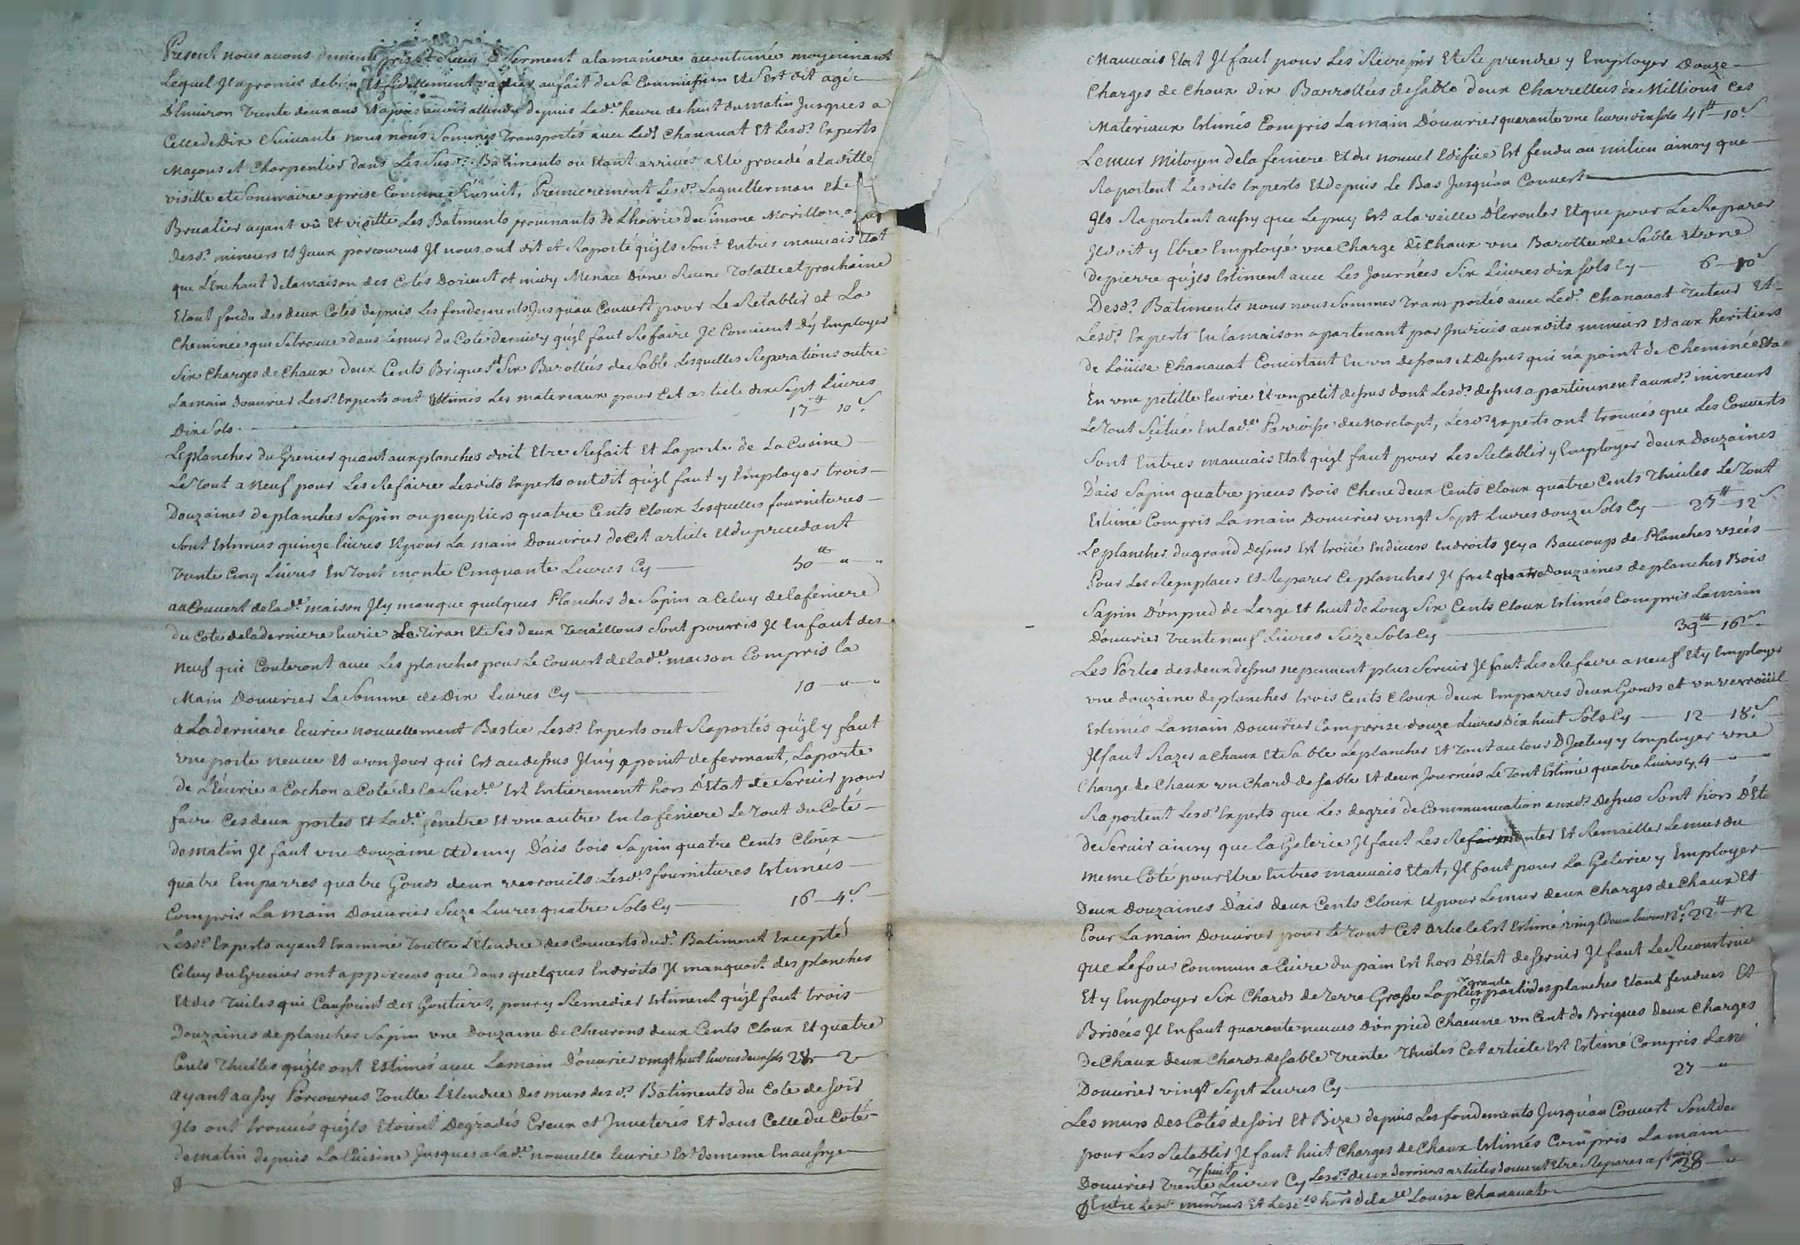 Present nous avons demeuré pris et Serment a la maniere acoutumée moyennant
Lequel Il a promis de bien et fidellement vacquer au fait de sa Commission et s'est dit agé
D'Environ Trente deux ans Et apres avoir attendu depuis Lad.e heure de huit du matin Jusques a
Celle de Dix Suivante nous nous Sommes Transportés avec Led.t Chanavat Et Lesd.s Experts
Maçons et Charpentier dans Les Sus d.s Batiments ou Etant arrivés a Eté procedé a laditte
visitte et Sommaire aprise Comme s'Ensuit, Premierement Lesd.s Laguillerman Et
Brualier ayant vû Et visitté Les Batiments provenants de L'hoirie de Simone Morillon
desd.s mineurs Et Iceux parcourus Il nous ont dit et Raporté qu'ils sont En tres mauvais Etat
que L'Enchant de la maison des Cotés Dorient et midy Menace D'une Ruine Totalle et prochaine
Etant fendu des deux Cotés depuis Les fondements Jusqu'au Couvert pour Le Retablir et La
Cheminée qui Se trouve dans Le mur du Coté dernier qu'il faut Refaire Il Convient D'y Employer
Six Charges de Chaux deux Cents Briques et Six Barottées de Sable, Lesquelles Reparations outre
La main Douvrier Lesd. Experts ont Estimés Les materiaux pour Cet article dix Sept Livres
Dix Sols. 17tt 10s
Le plancher du Grenier quant aux planches doit Etre Refait Et La porte de La Cuisine
Le Tout a Neuf pour Les Refaire Lesdits Experts ont dit qu'il faut y Employer trois
Douzaines de planches Sapin ou peupliers quatre Cents Cloux Lesquelles fournitures
Sont Estimées quinze Livres Et pour La main Douvrier de Cet article Et du precedant
Trente Cinq Livres En Tout monte Cinquante Livres Cy 50tt " "
au Couvert de lad.e maison Il y manque quelques Planches de Sapin a Celuy de la feniere
du Coté de la derniere Ecurie Le Tiran Et Ses deux Tenaillons Sont pourris Il En faut des
Neuf qui Couteront avec Les planches pour Le Couvert de lad.e maison Compris la
Main Douvrier La Somme de Dix Livres Cy 10 " "
a La derniere Ecurie nouvellement Bastie Lesd.s Experts ont Raportés qu'il y faut
une porte neuve Et a un Jour qui Est au dessus Il n'y a point de fermant, La porte
de L'Ecurie a Cochon a Coté de la Susd.e Est Entierement hors d'Etat de Servir pour
faire Ces deux portes Et Lad.e fenetre Et une autre En la feniere Le Tout du Coté
de matin Il faut une Douzaine Et demy D'ais bois Sapin quatre Cents Cloux
quatre Emparres quatre Gonds deux verrouils Lesd.es fournitures Estimées
Compris La main Douvrier Seize Livres quatre Sols Cy 16 4s
Lesd.s Experts ayant Examiné Toutte L'Etendue des Couverts dud.t Batiment Excepté
Celuy du Grenier ont apperceus que dans quelques Endroits Il manquoit des planches
Et des Tuiles qui Causoint des Goutieres, pour y Remedier Estiment qu'il faut trois
Douzaines de planches Sapin une Douzaine de Chevrons deux Cents Cloux Et quatre
Cents Thuilles qu'ils ont Estimés avec La main D'ouvrier vingt huit livres deux sols 28 2
Ayant aussy Parcourus Toutte L'Etendue des murs desd.s Batiments du Coté de Soir
Ils ont trouvés qu'ils Etoint Degradés Creux et Inveterés Et dans Celle du Coté
de matin depuis La Cuisine Jusques a lad.e nouvelle Ecurie Est de meme En aussy
Mauvais Etat Il faut pour Les Recrepir Et Reprendre y Employer Douze
Charges de Chaux dix Barrottées de sable deux Charrettées de Millious Ces
Materiaux Estimés Compris La main D'ouvrier quarante une livres dix sols 41tt 10s
Le mur mitoyen de la feniere Et du nouvel Edifice Est fendu au milieu ainsy que
Raportent Lesdits Experts Et depuis le Bas Jusqu'au Couvert
Ils Raportent aussy que Le puy Est a la veille D'Ecrouler Et que pour Le Reparer
Il doit y Etre Employé une Charge de Chaux une Barottée de Sable Et une
de pierre qu'ils Estiment avec Les Journées Six Livres dix sols Cy 6 10s
Desd.s Batiments nous nous Sommes Transportés avec Led.t Chanavat Tuteur Et
Lesd.s Experts En la maison appartenant par Indivis auxdits mineurs Et aux heritiers
de Loüise Chanavat Consistant En un dessous et dessus qui n'a point de Cheminée Et a
En une petitte Ecurie Et un petit dessus dont Lesd.s dessus appartiennent auxd.s mineurs
Le Tout Scitué En lad.e Parroisse de Marclopt, Lesd.s Experts ont trouvés que Les Couverts
Sont En tres mauvais Etat qu'il faut pour Les Retablir y Employer deux Douzaines
D'ais Sapin quatre pieces Bois Chene deux Cents Cloux quatre Cents Thuiles Le Tout
Estimé Compris La main Douvrier vingt Sept Livres douze Sols Cy 27tt 12s
Le plancher du grand dessus Est troüé En divers Endroits Il y a Beaucoup de Planches usées
Pour Les Remplacer Et Reparer Le plancher Il faut quatre Douzaines de planches Bois
Sapin D'un pied de Large Et huit de Long Six Cents Cloux Estimés Compris La main
D'ouvrier Trente neuf Livres Seize Sols Cy 39tt 16s
Les Portes des deux dessus ne peuvent plus Servir Il faut Les Refaire a neuf Et y Employer
une douzaine de planches trois Cents Cloux deux Emparres deux Gonds et un verroüil
Estimés La main Douvrier Comprise douze Livres dix huit Sols Cy 12 18s
Il faut Razer a Chaux Et Sable Le plancher Et Tout au tour D'Iceluy y Employer une
Charge de Chaux un Chard de sable Et deux Journées Le Tout Estimé quatre livres Cy 4 " "
Raportent Lesd.s Experts que Les degrés de Communication auxd.s Dessus Sont hors D'Etat
de Servir ainsy que la Galerie Il faut Les Et Remailler Le mur du
meme Coté pour Etre En tres mauvais Etat, Il faut pour La Galerie y Employer
Deux Douzaines D'ais deux Cents Cloux Et pour Le mur deux Charges de Chaux Et
Pour La main Douvrier pour le Tout Cet article Est Estimé vingt deux livres 12s 22tt 12
que Le four Commun a Cuire du pain Est hors d'Etat de servir Il faut Le Reconstruire
Et y Employer Six Chards de Terre Grasse La plus grande partie des planches Etant fendues Et
Brisées Il En faut quarante neuves D'un pied Chacune un Cent de Briques deux Charges
de Chaux deux Chards de Sable Trente Thuiles Cet article Est Estimé Compris La main
Douvrier vingt Sept Livres Cy 27 "
Les murs des Cotés de Soir Et Bize depuis Les fondements Jusqu'au Couvert Sont de
pour Les Retablir Il faut huit Charges de Chaux Estimés Compris La main
Douvrier Trente huit Livres Cy Les d.s deux derniers articles doivent Etre Reparés a frais 38 "
Entre Les d.s mineurs Et Lesd.s hers de lad.e Louise Chanavat